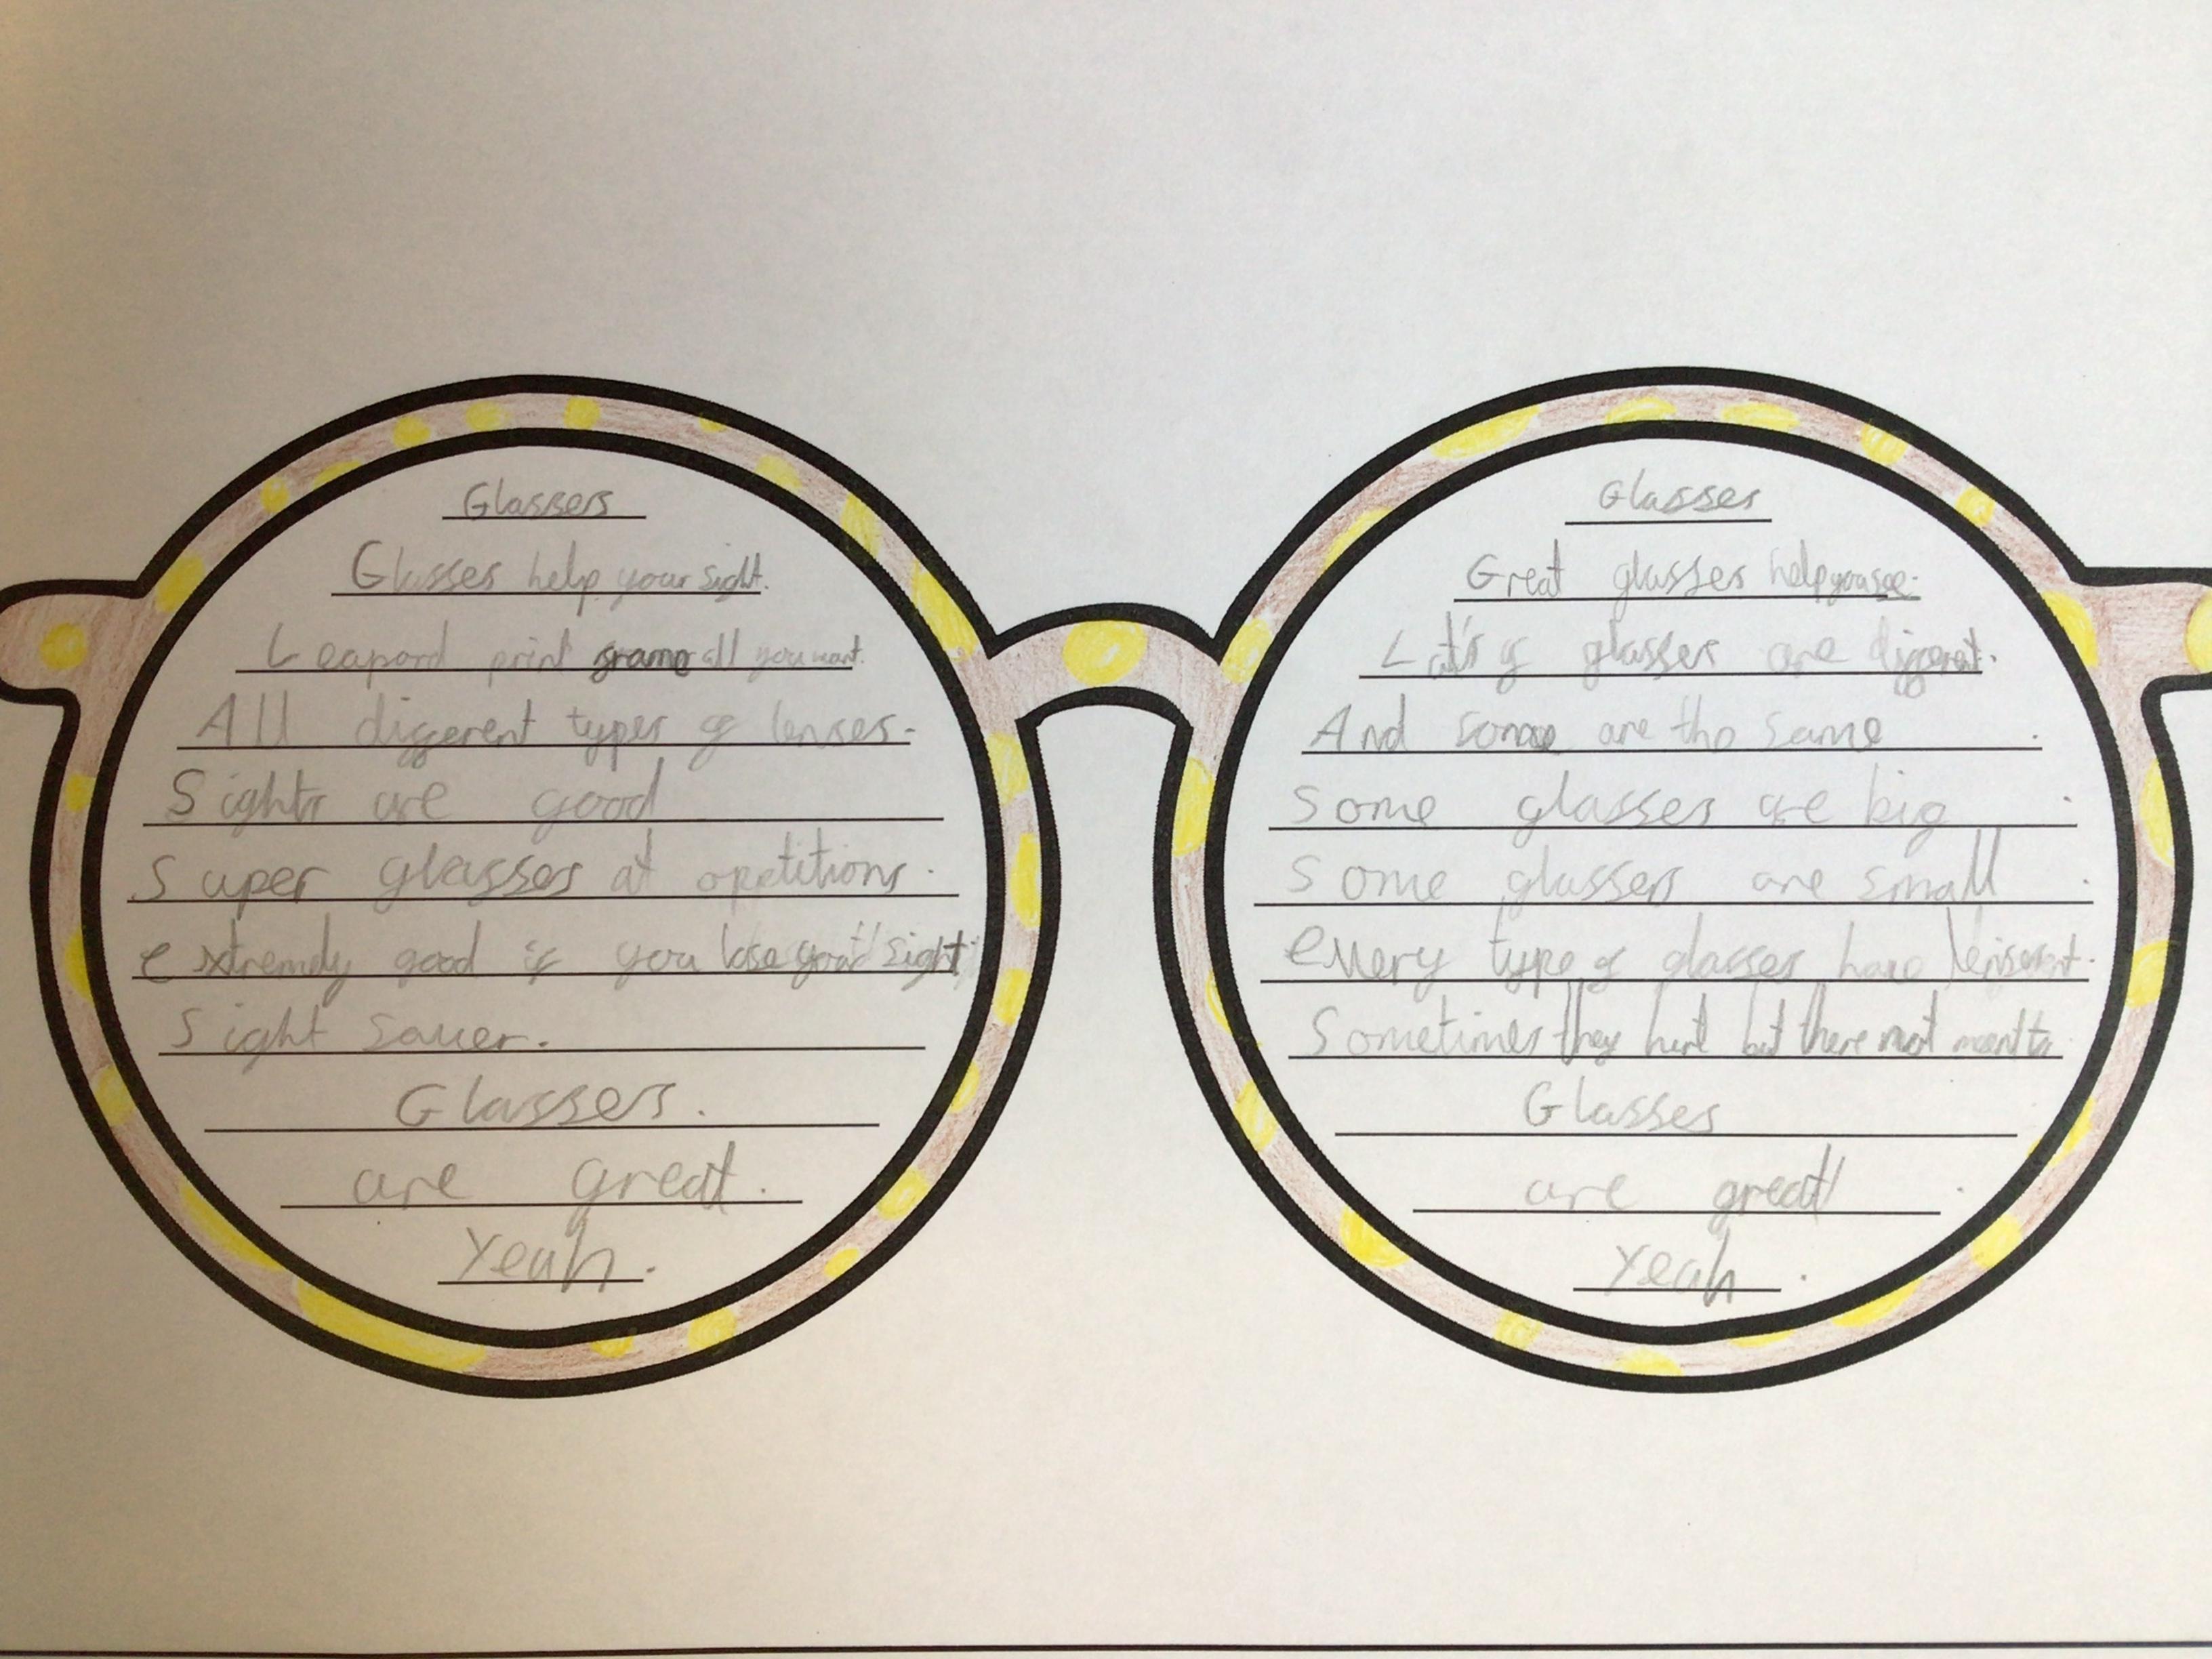 Glassers
Glasses help your sight.
Leapard print frame all you want.
All different types of lenses.
Sights are good
Super glasses at opetitions.
extremely good if you lose your sight
Sight saver.
Glasses.
are great.
Yeah.
Glasses
Great glasses help you see.
Lot's of glasses are different.
And some are the same.
Some glasses are big.
Some glasses are small.
every type of glasses have
Sometimes they hurt but there not meant to
Glasses
are great!
Yeah.